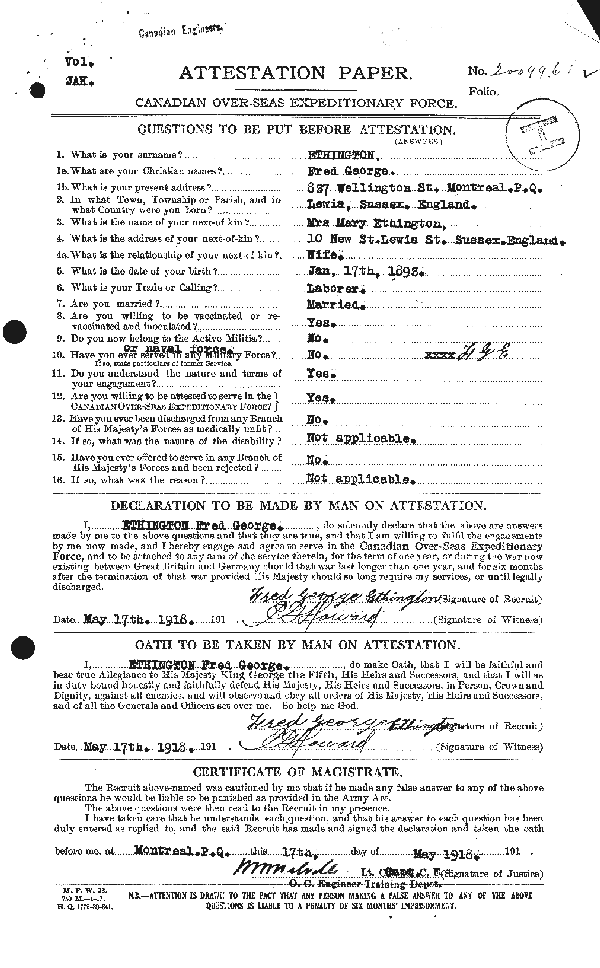 Canadian Engineers.
Vol.
JAH.
ATTESTATION PAPER.
No.
Folio.
CANADIAN OVER-SEAS EXPEDITIONARY FORCE.
QUESTIONS TO BE PUT BEFORE ATTESTATION.
(ANSWERS)
1. What is your surname? ETHINGTON,
1a. What are your Christian names? Fred George.
1b. What is your present address? 837 Wellington St. Montreal.P.Q.
2. In what Town, Township or Parish, and in
what Country were you born? Lewis, Sussex, England.
3. What is the name of your next-of kin? Mrs Mary Ethington,
4. What is the address of your next-of-kin? 10 New St.Lewis St. Sussex.England.
4a. What is the relationship of your next of kin? Wife.
5. What is the date of your birth? Jan, 17th, 1893.
6. What is your Trade or Calling? Laborer.
7. Are you married? Married.
8. Are you willing to be vaccinated or re-
vaccinated and inoculated? Yes.
9. Do you now belong to the Active Militia? No.
Or naval force.
10. Have you ever served in any Military Force? No. xxxx F G E
If so, state particulars of former Service.
11. Do you understand the nature and terms of
your engagement? Yes.
12. Are you willing to be attested to serve in the
CANADIAN OVER-SEAS EXPEDITIONARY FORCE? Yes.
13. Have you ever been discharged from any Branch
of His Majesty's Forces as medically unfit? No.
14. If so, what was the nature of the disability? Not applicable.
15. Have you ever offered to serve in any Branch of
His Majesty's Forces and been rejected? No.
16. If so, what was the reason? Not applicable.
DECLARATION TO BE MADE BY MAN ON ATTESTATION.
I, ETHINGTON Fred George. , do solemnly declare that the above are answers
made by me to the above questions and that they are true, and that I am willing to fulfil the engagements
by me now made, and I hereby engage and agree to serve in the Canadian Over-Seas Expeditionary
Force, and to be attached to any arm of the service therein, for the term of one year, or during the war now
existing between Great Britain and Germany should that war last longer than one year, and for six months
after the termination of that war provided His Majesty should so long require my services, or until legally
discharged.
Fred George Ethington (Signature of Recruit)
Date May 17th. 1918. 191 Howard (Signature of Witness)
OATH TO BE TAKEN BY MAN ON ATTESTATION.
I, ETHINGTON Fred George. , do make Oath, that I will be faithful and
bear true Allegiance to His Majesty King George the Fifth, His Heirs and Successors, and that I will as
in duty bound honestly and faithfully defend His Majesty, His Heirs and Successors, in Person, Crown and
Dignity, against all enemies, and will observe and obey all orders of His Majesty, His Heirs and Successors,
and of all the Generals and Officers set over me. So help me God.
Fred George Ethington (Signature of Recruit)
Date May 17th. 1918. 191 Howard (Signature of Witness)
CERTIFICATE OF MAGISTRATE.
The Recruit above-named was cautioned by me that if he made any false answer to any of the above
questions he would be liable to be punished as provided in the Army Act.
The above questions were then read to the Recruit in my presence.
I have taken care that he understands each question, and that his answer to each question has been
duly entered as replied to, and the said Recruit has made and signed the declaration and taken the oath
before me, at Montreal.P.Q. this 17th. day of May 1918. 191 .
Lt (Signature of Justice)
O. C. Engineer Training Depot.
M. F. W. 23.
H. Q. 1772-39-841.
N.B.—ATTENTION IS DRAWN TO THE FACT THAT ANY PERSON MAKING A FALSE ANSWER TO ANY OF THE ABOVE
QUESTIONS IS LIABLE TO A PENALTY OF SIX MONTHS' IMPRISONMENT.